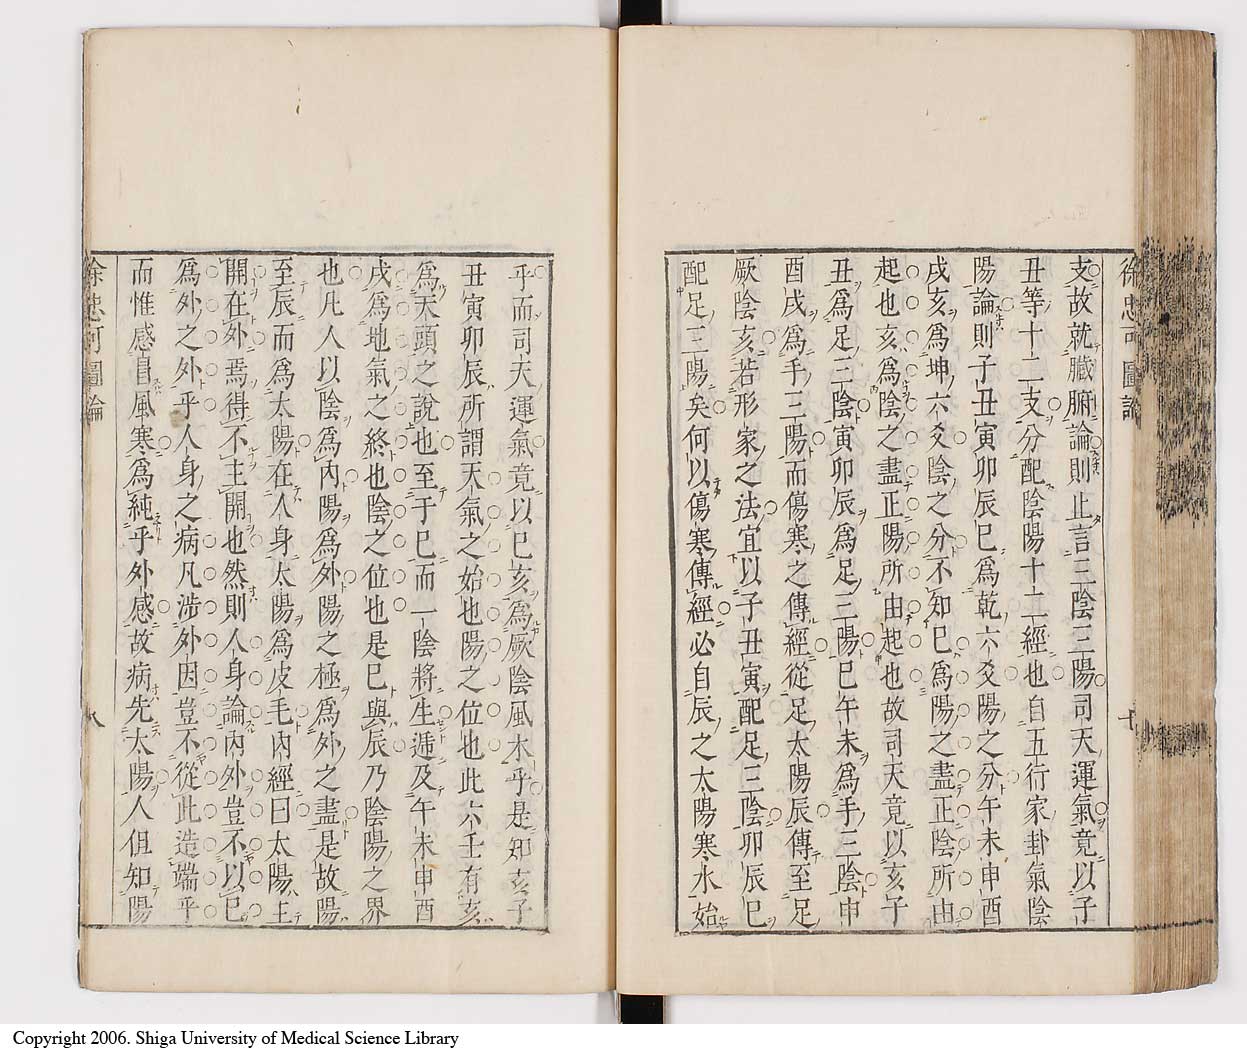 支故就臓腑論則止言三陰三陽司天運氣竟以子
丑等十二支分配陰陽十二經也自五行家卦氣陰
陽論則子丑寅卯辰巳爲乾六爻陽之分午未申酉
戌亥爲坤六爻陰之分不知巳爲陽之盡正陰所由
起也亥爲陰之盡正陽所由起也故司天竟以亥子
丑爲足三陰寅卯辰爲足三陽巳午未爲手三陰申
酉戌爲手三陽而傷寒之傳經從足太陽辰傳至足
厥陰亥若形家之法宜以子丑寅配足三陰卯辰巳
配足三陽矣何以傷寒傳經必自辰之太陽寒水始
乎而司天運氣竟以巳亥爲厥陰風木乎是知亥子
丑寅卯辰所謂天氣之始也陽之位也此六壬有亥
爲天頭之說也至于巳而一陰將生遁及午未申酉
戌爲地氣之終也陰之位也是巳與辰乃陰陽之界
也凡人以陰爲內陽爲外陽之極爲外之盡是故陽
至辰而爲太陽在人身太陽爲皮毛內經曰太陽主
開在外焉得不主開也然則人身論內外豈不以巳
爲外之外乎人身之病凡涉外因豈不從此造端乎
而惟感冒風寒爲純乎外感故病先太陽人但知陽
徐忠可圖論
八
Copyright 2006. Shiga University of Medical Science Library